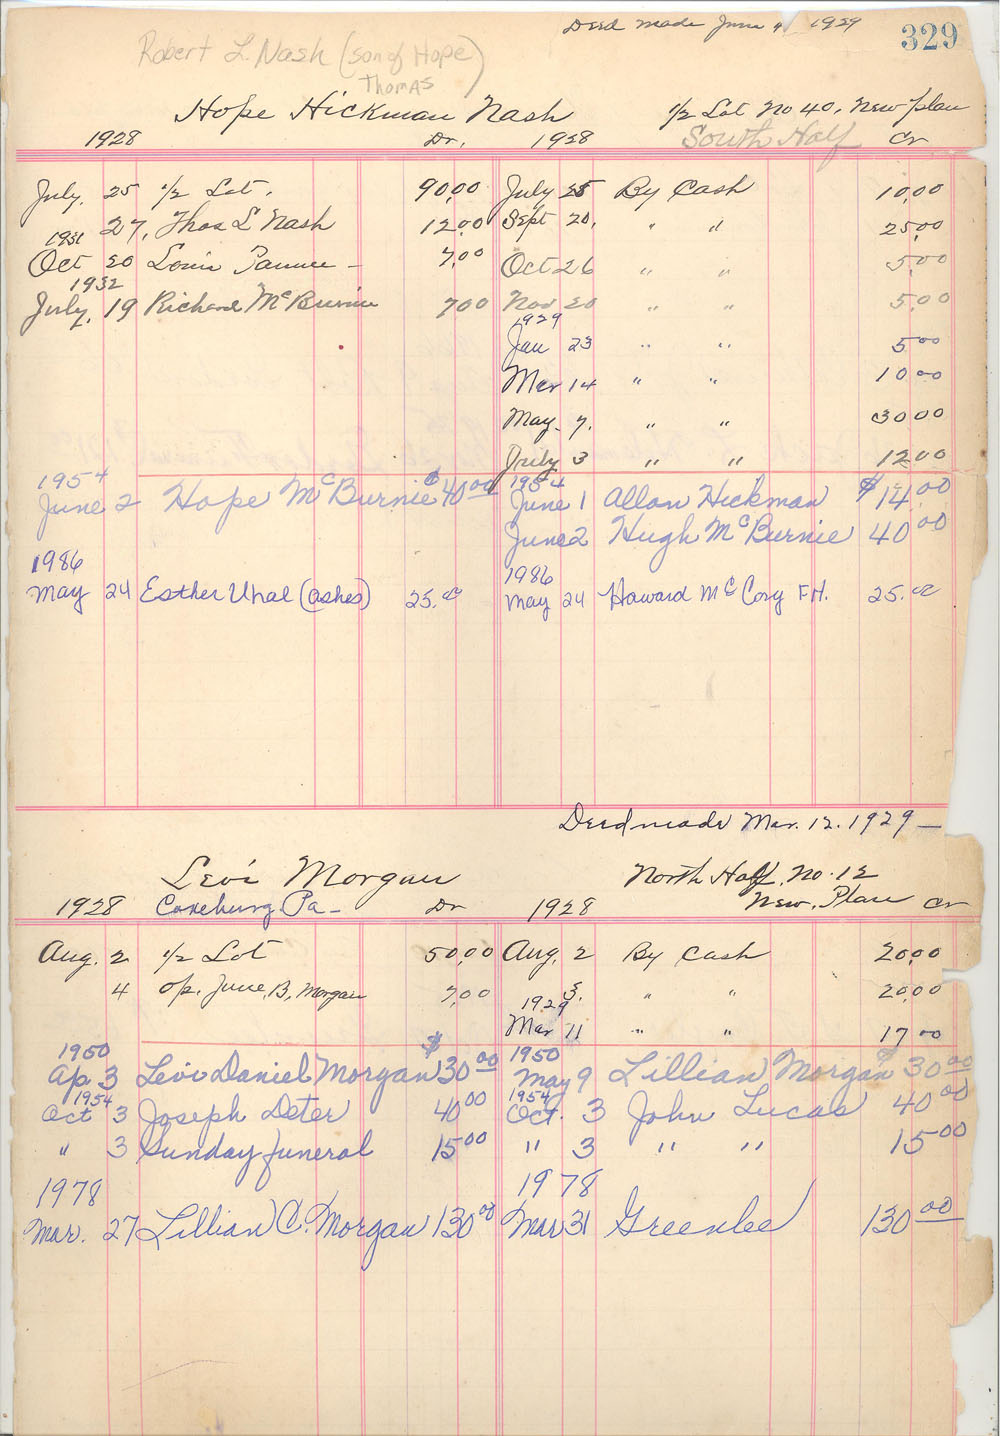 Deed made June 4 1929
329
Robert L. Nash (son of Hope)
Thomas
Hope Hickman Nash 1/2 Lot No 40, New plan
1928 Dr. 1928 South Half Cr
July. 25 1/2 Lot. 90,00 July 25 By Cash 10,00
27, Thos L Nash 12,00 Sept 20, " " 25,00
1931
Oct 20 Louis 7,00 Oct 26 " " 5,00
1932
July, 19 Richard McBurnie 7 00 Nov 20 " " 5,00
1929
Jan 23 " " 5 00
Mar 14 " " 10 00
May 7. " " 30 00
July 3 " " 12 00
1954 1954
June 2 Hope McBurnie $40 00 June 1 Allan Hickman $14 00
June 2 Hugh McBurnie 40 00
1986 1986
May 24 Esther Uhal (ashes) 25.00 May 24 Howard McCory F.H. 25.00
Deed made Mar. 12. 1929 —
Levi Morgan North Half, No. 12
1928 Pa — Dr 1928 New. Plan Cr
Aug. 2 1/2 Lot 50,00 Aug, 2 By Cash 20,00
4 op. June, B, Morgan 7,00 3. " " 20,00
1929
Mar 11 " " 17 00
1950 1950
Ap 3 Levi Daniel Morgan $30 00 May 9 Lillian Morgan $30 00
1954 1954
Oct 3 Joseph Deter 40 00 Oct. 3 John Lucas 40 00
" 3 Sunday funeral 15 00 " 3 " " 15 00
1978 1978
Mar. 27 Lillian C. Morgan 130 00 Mar 31 Greenlee 130 00